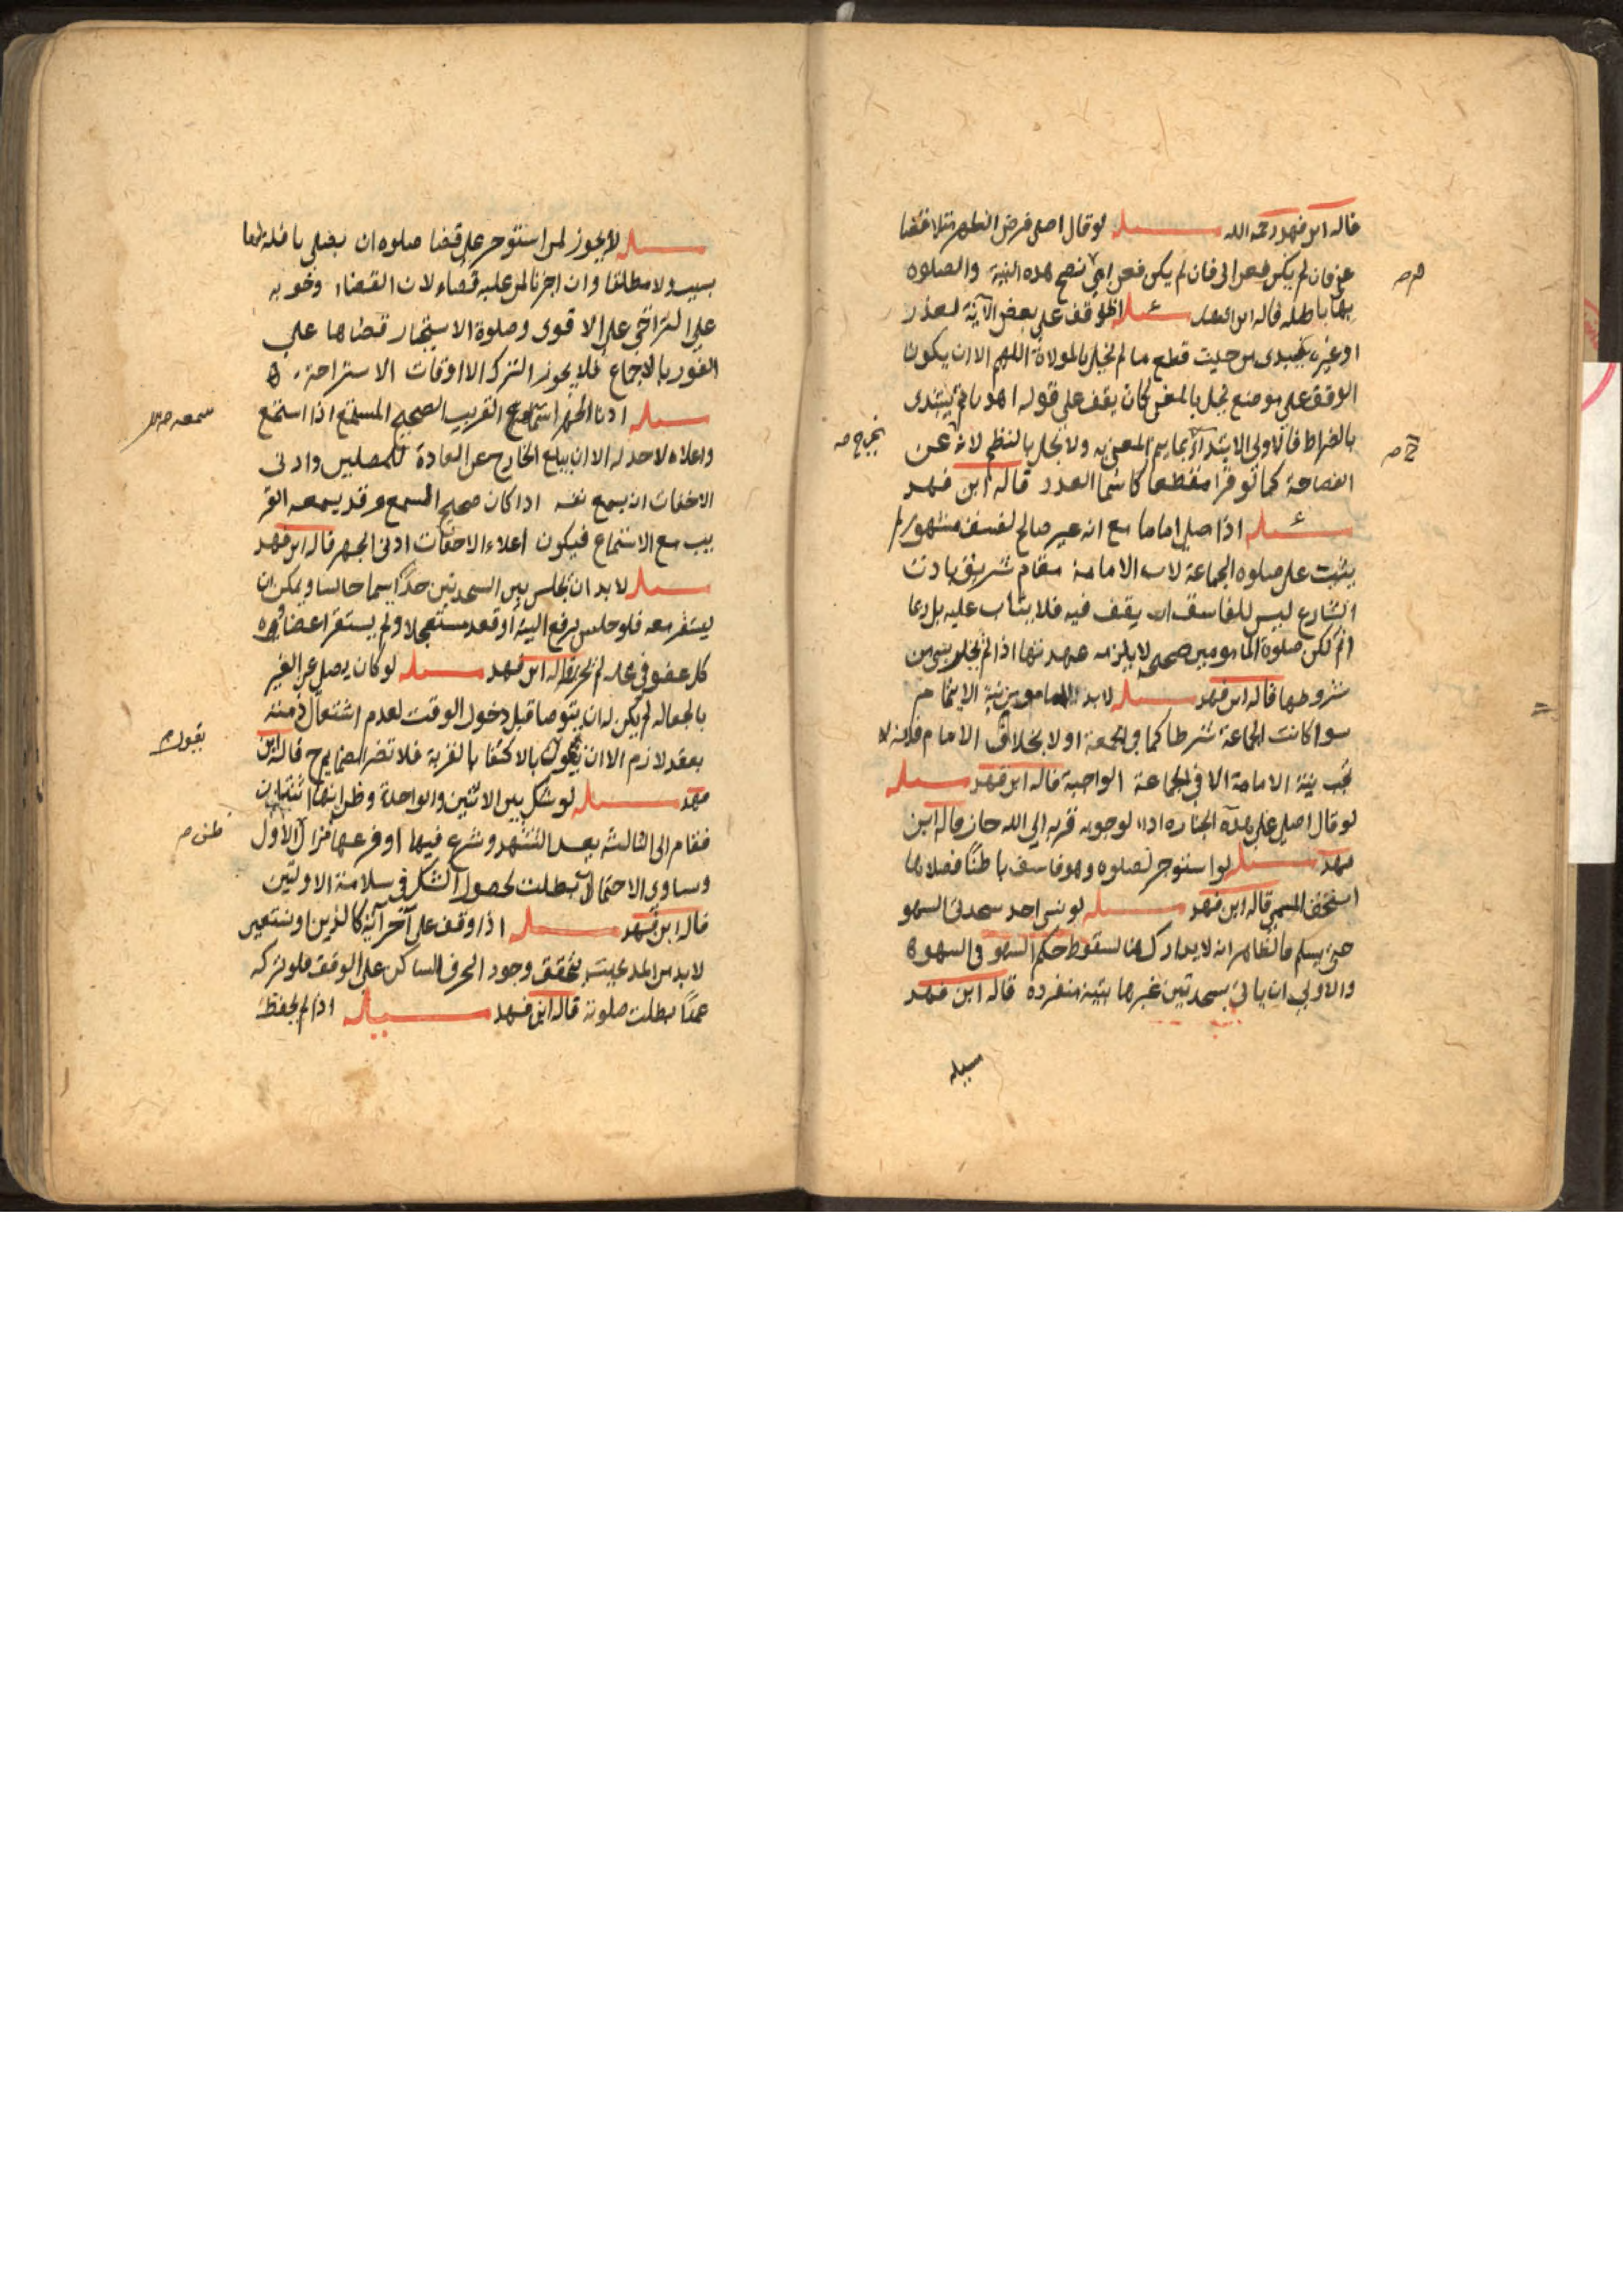 قاله ابن فهد رحمه الله مسله لو قال اصلى فرض الظهر مثلا قضا
عن فان لم يكن فعن ابى فان لم يكن فعن امى تصح هذه النية والصلوه
بها باطله قاله ابن فهد مسئله لو وقف على بعض الآية لعذر
او غيره يبتدى من حيث قطع ما لم يخل بالموالاة اللهم الا ان يكون
الوقف على موضع يخل بالمعنى كان يقف على قوله اهدنا ثم يبتدى
بالصراط فالاولى الابتداء بما يتم المعنى به ولا يخل بالنظم لانه عن
الفصاحة كما لو قرا مقطعا كاسما العدد قاله ابن فهد
مسئله اذا صلى اماما مع انه غير صالح لفسق مشهور لا
يثبت على صلوه الجماعة لان الامامة مقام شريف باذن
الشارع ليس للفاسق ان يقف فيه فلا يثاب عليه بل ربما
اثم لكن صلوة المامومين صحيحه لا يلزمه عهدتها اذا لم يخل بشى من
شروطها قاله ابن فهد مسله لابد للماموم من نية الايتمام
سوا كانت الجماعة شرطا كما فى الجمعة اولا بخلاف الامام فانه لا
تجب نية الامامة الا فى الجماعة الواجبة قاله ابن فهد مسله
لو قال اصلى على هذه الجنازه اداء لوجوبه قربه الى الله جاز قاله ابن
فهد مسله لو استوجر لصلوه وهو فاسق باطنًا فصلاها
استحق المسمى قاله ابن فهد مسله لو نسى احد سجدتى السهو
حتى يسلم فالظاهر انه لا يدارك هنا لسقوط حكم السهو فى السهو ه
والاولى ان ياتى بسجدتين غيرها بنية منفرده قاله ابن فهد
مسله
مسله لا يجوز لمن استوجر على قضا صلوه ان يصلى نافلة لها
سبب ولا مطلقا وان اجزنا لمن عليه قضاء لان القضاء وخوبه
على التراخى على الاقوى وصلوة الاستيجار قضاها على
الفور بالاجماع فلا يجوز الترك الا اوقات الاستراحة ه
مسله ادنا الجهر استماع القريب الصحيح المستمع اذا استمع
واعلاه لا حد له الا ان يبلغ الخارج عن العادة للمصلين وادنى
الاخفات ان يسمع نفسه اذا كان صحيح السمع وقد يسمعه القر
يب مع الاستماع فيكون اعلاء الاخفات ادنى الجهر قاله ابن فهد
مسله لا بد ان يجلس بين السجدتين حدًا يسما جالسا ويمكن ان
يستقر معه فلو جلس برفع اليته او قعد مستعجلا ولم يستقر اعضاوه
كل عضو فى محله لم يجز قاله ابن فهد مسله لو كان يصلى عن الغير
بالجعاله لم يكن له ان يتوضا قبل دخول الوقت لعدم اشتغال ذمته
بعقد لازم الا ان يقول بالاكتفا بالقربة فلا تضر الضمايم ح قاله ابن
فهد مسله لو شك بين الاثنين والواحدة وظن انها اثنتان
فقام الى الثالثه بعد التشهد وشرع فيها او فرغ منها فزال الاول
وساوى الاحتمالان بطلت لحصول الشك فى سلامة الاوليين
قاله ابن فهد مسله اذا وقف على آخر آية كالذين او نستعين
لابد من المد بحيث يتحقق وجود الحرف الساكن على الوقف فلو تركه
عمدًا بطلت صلوته قاله ابن فهد مسله اذا لم يحفظ
يقول م
ظن صه